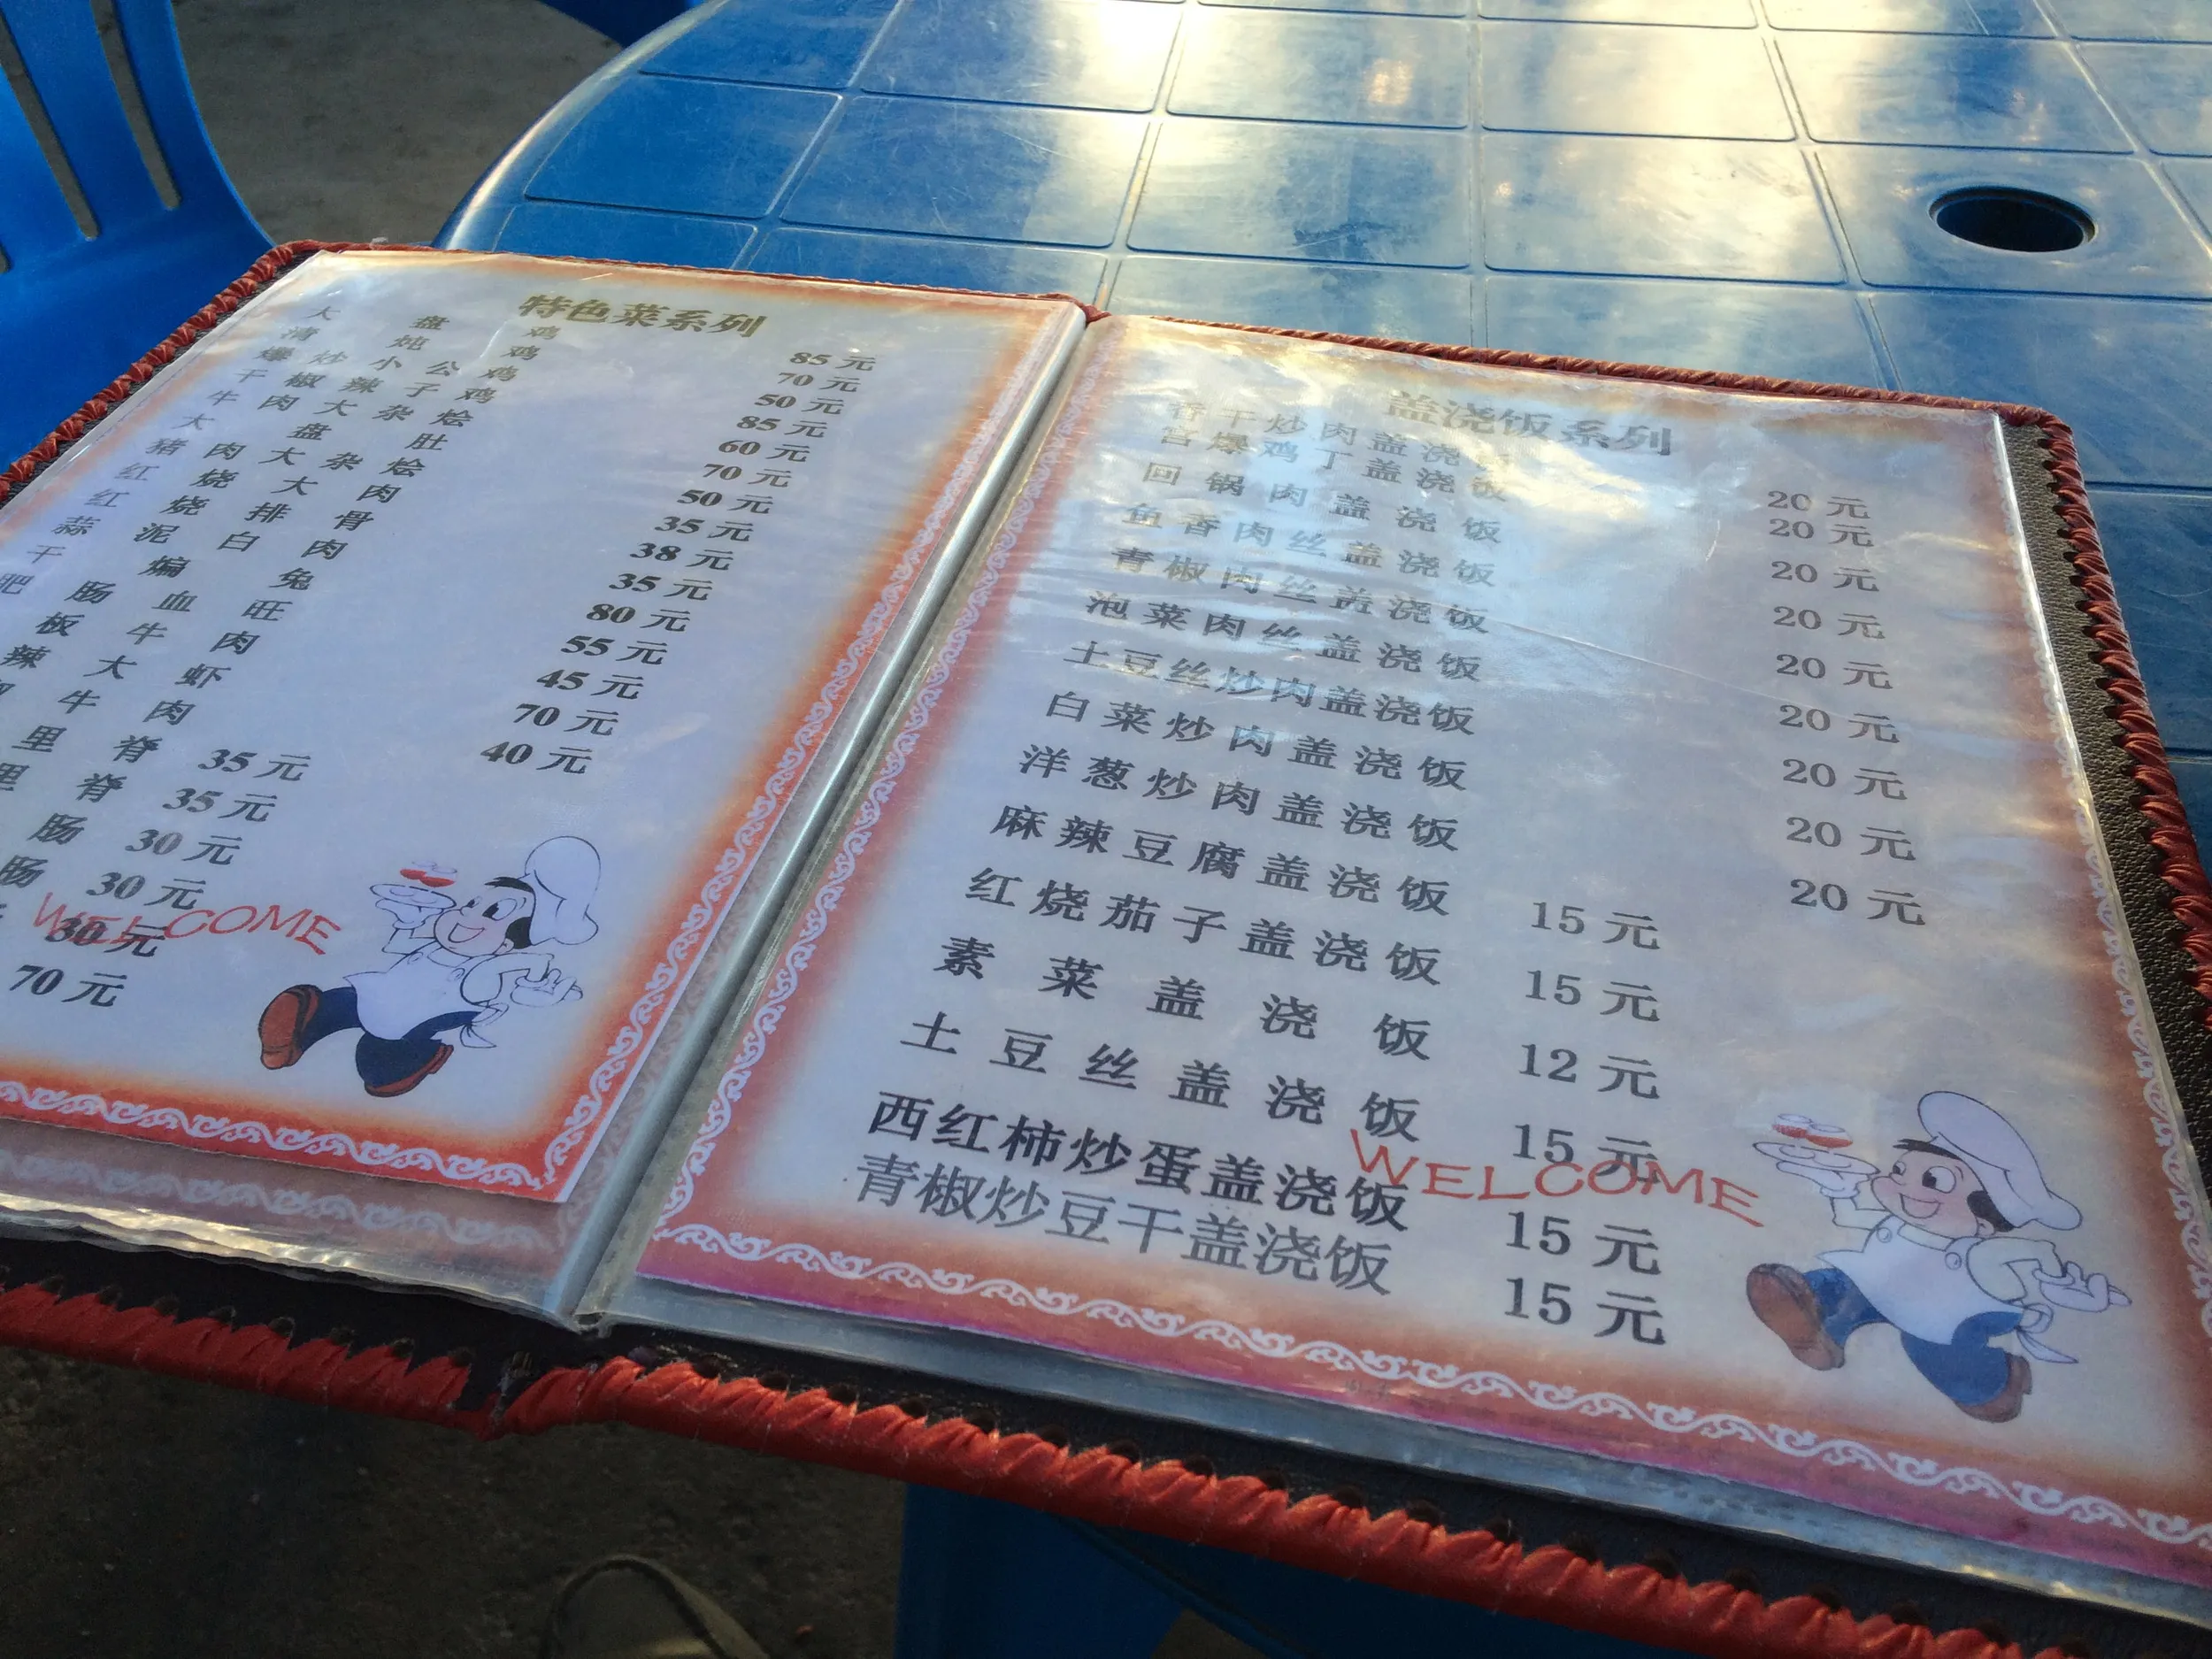 特色菜系列
大盘鸡 85元
清炖鸡 70元
爆炒小公鸡 50元
干椒辣子鸡 85元
牛肉大杂烩 60元
大盘肚 70元
猪肉大杂烩 50元
红烧大肉 35元
红烧排骨 38元
蒜泥白肉 35元
干煸兔 80元
肥肠血旺 55元
板牛肉 45元
辣大虾 70元
牛肉 40元
里脊 35元
里脊 35元
肠 30元
肠 30元
30元
70元
WELCOME
盖浇饭系列
香干炒肉盖浇饭 20元
宫爆鸡丁盖浇饭 20元
回锅肉盖浇饭 20元
鱼香肉丝盖浇饭 20元
青椒肉丝盖浇饭 20元
泡菜肉丝盖浇饭 20元
土豆丝炒肉盖浇饭 20元
白菜炒肉盖浇饭 20元
洋葱炒肉盖浇饭 20元
麻辣豆腐盖浇饭 15元
红烧茄子盖浇饭 15元
素菜盖浇饭 12元
土豆丝盖浇饭 15元
西红柿炒蛋盖浇饭 15元
青椒炒豆干盖浇饭 15元
WELCOME